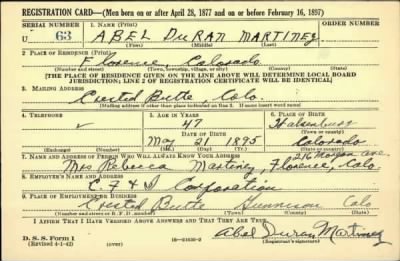 REGISTRATION CARD—(Men born on or after April 28, 1877 and on or before February 16, 1897)
SERIAL NUMBER 1. NAME (Print) ORDER NUMBER
U 63 ABEL DURAN MARTINEZ
(First) (Middle) (Last)
2. PLACE OF RESIDENCE (Print)
Florence, Colorado
(Number and street) (Town, township, village, or city) (County) (State)
[THE PLACE OF RESIDENCE GIVEN ON THE LINE ABOVE WILL DETERMINE LOCAL BOARD
JURISDICTION; LINE 2 OF REGISTRATION CERTIFICATE WILL BE IDENTICAL]
3. MAILING ADDRESS
Crested Butte, Colo.
[Mailing address if other than place indicated on line 2. If same insert word same]
4. TELEPHONE 5. AGE IN YEARS 6. PLACE OF BIRTH
47
DATE OF BIRTH (Town or county)
May 21 1895 Colorado
(Exchange) (Number) (Mo.) (Day) (Yr.) (State or country)
7. NAME AND ADDRESS OF PERSON WHO WILL ALWAYS KNOW YOUR ADDRESS 216 Morgan Ave.
Mrs Rebecca Martinez, Florence, Colo
8. EMPLOYER'S NAME AND ADDRESS
C. F. & I Corporation
9. PLACE OF EMPLOYMENT OR BUSINESS
Crested Butte Gunnison Colo
(Number and street or R. F. D. number) (Town) (County) (State)
I AFFIRM THAT I HAVE VERIFIED ABOVE ANSWERS AND THAT THEY ARE TRUE.
D. S. S. Form 1
(Revised 4-1-42) (over) Abel Duran Martinez
(Registrant's signature)